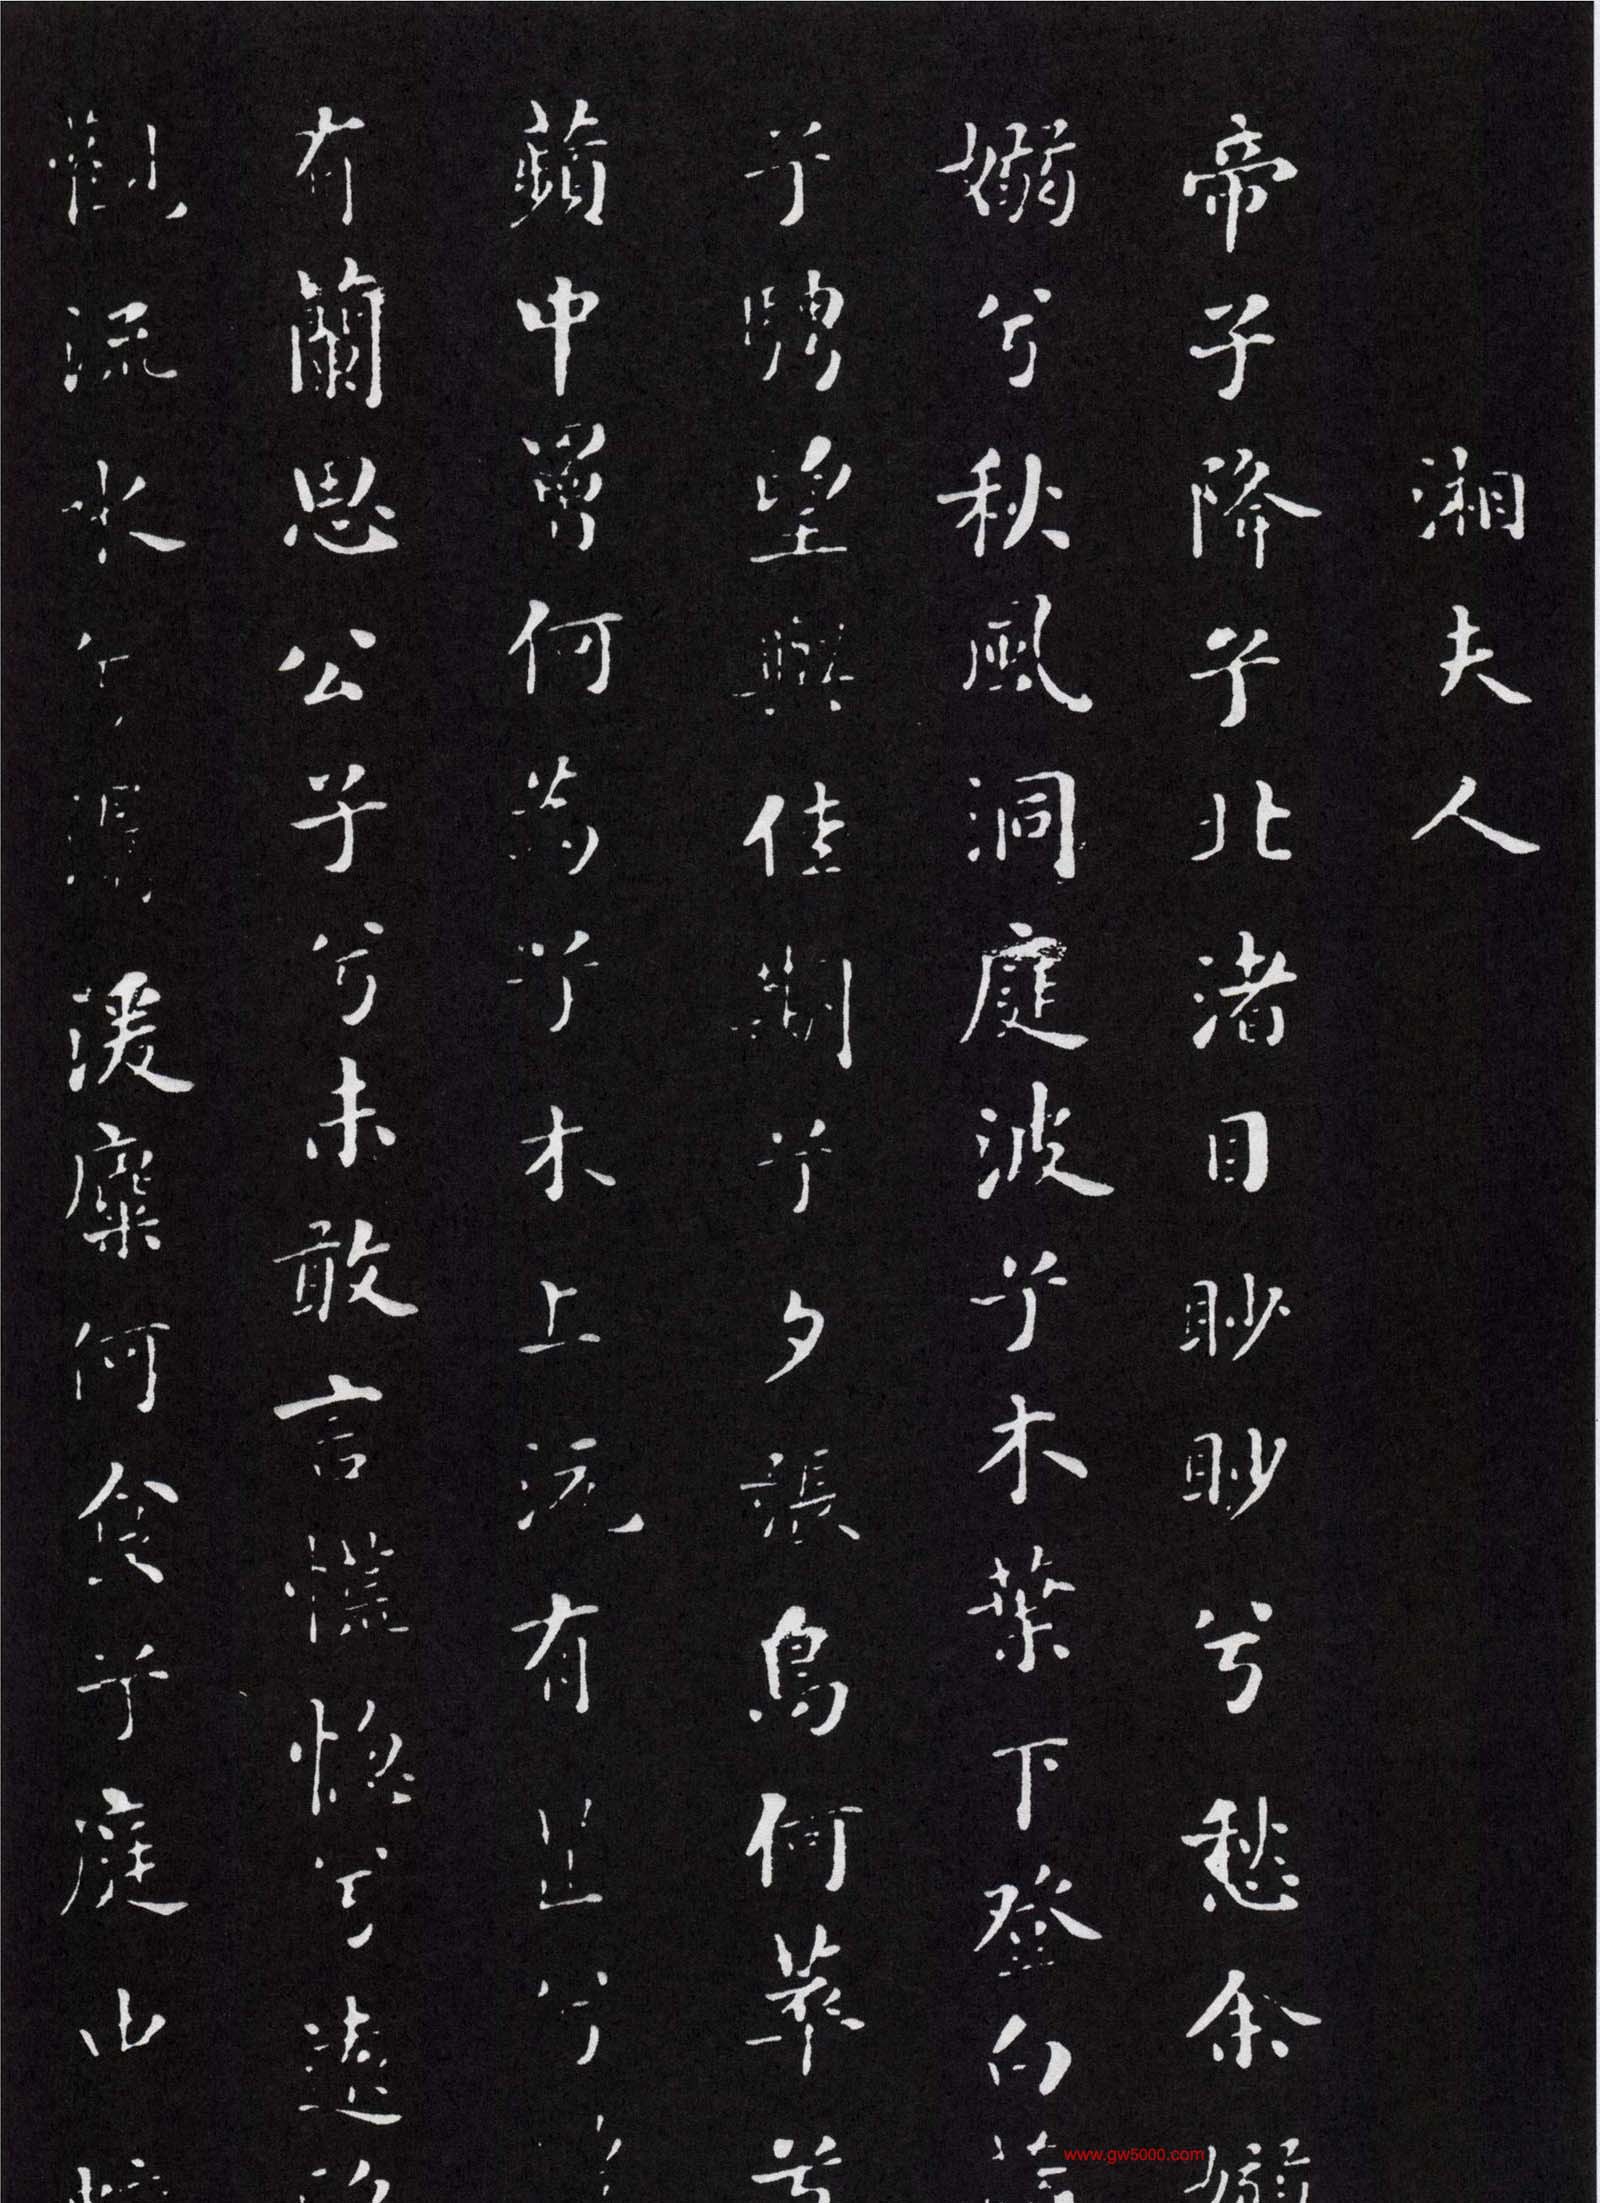 湘夫人
帝子降兮北渚目眇眇兮愁余嫋
嫋兮秋風洞庭波兮木葉下登白
兮騁望與佳期兮夕張鳥何萃兮
蘋中罾何為兮木上沅有芷兮
有蘭思公子兮未敢言慌惚兮遠
觀流水兮潺湲麋何食兮庭中
www.gw5000.com